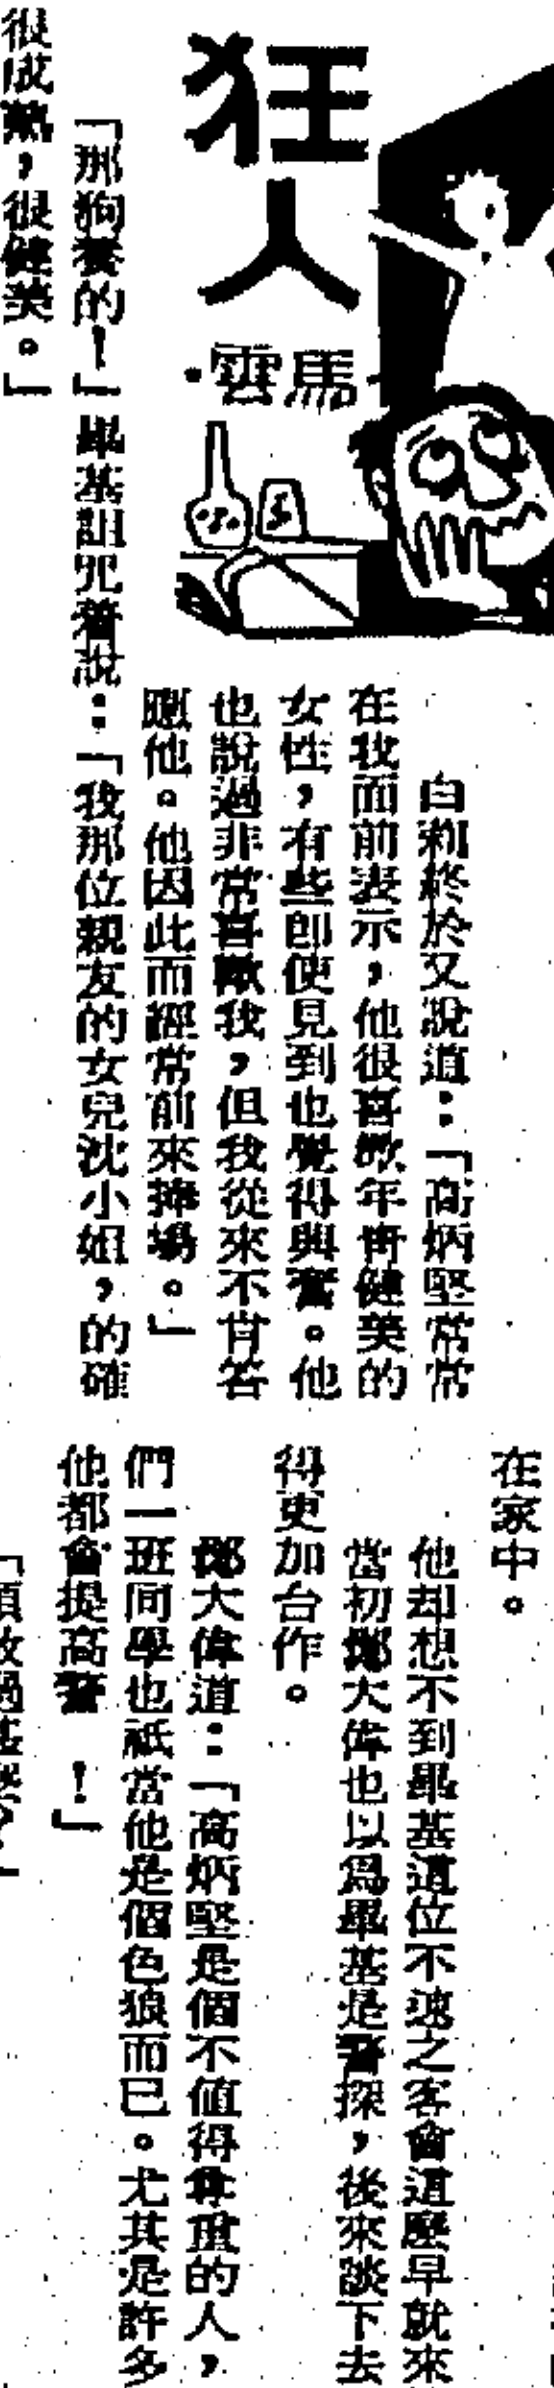 狂人
馬雲·
白賴終於又說道：「高炳堅常常
在我面前表示，他很喜歡年青健美的
女性，有些即使見到也覺得興奮。他
也說過非常喜歡我，但我從來不肯答
應他。他因此而經常前來捧場。」
「那狗養的！」畢基詛咒着說：「我那位親友的女兒沈小姐，的確
很成熟，很健美。」
在家中。
他却想不到畢基這位不速之客會這麼早就來
當初鄧大偉也以爲畢基是警探，後來談下去
得更加合作。
鄧大偉道：「高炳堅是個不值得尊重的人，
們一班同學也祗當他是個色狼而已。尤其是許多
他都會提高警　！」